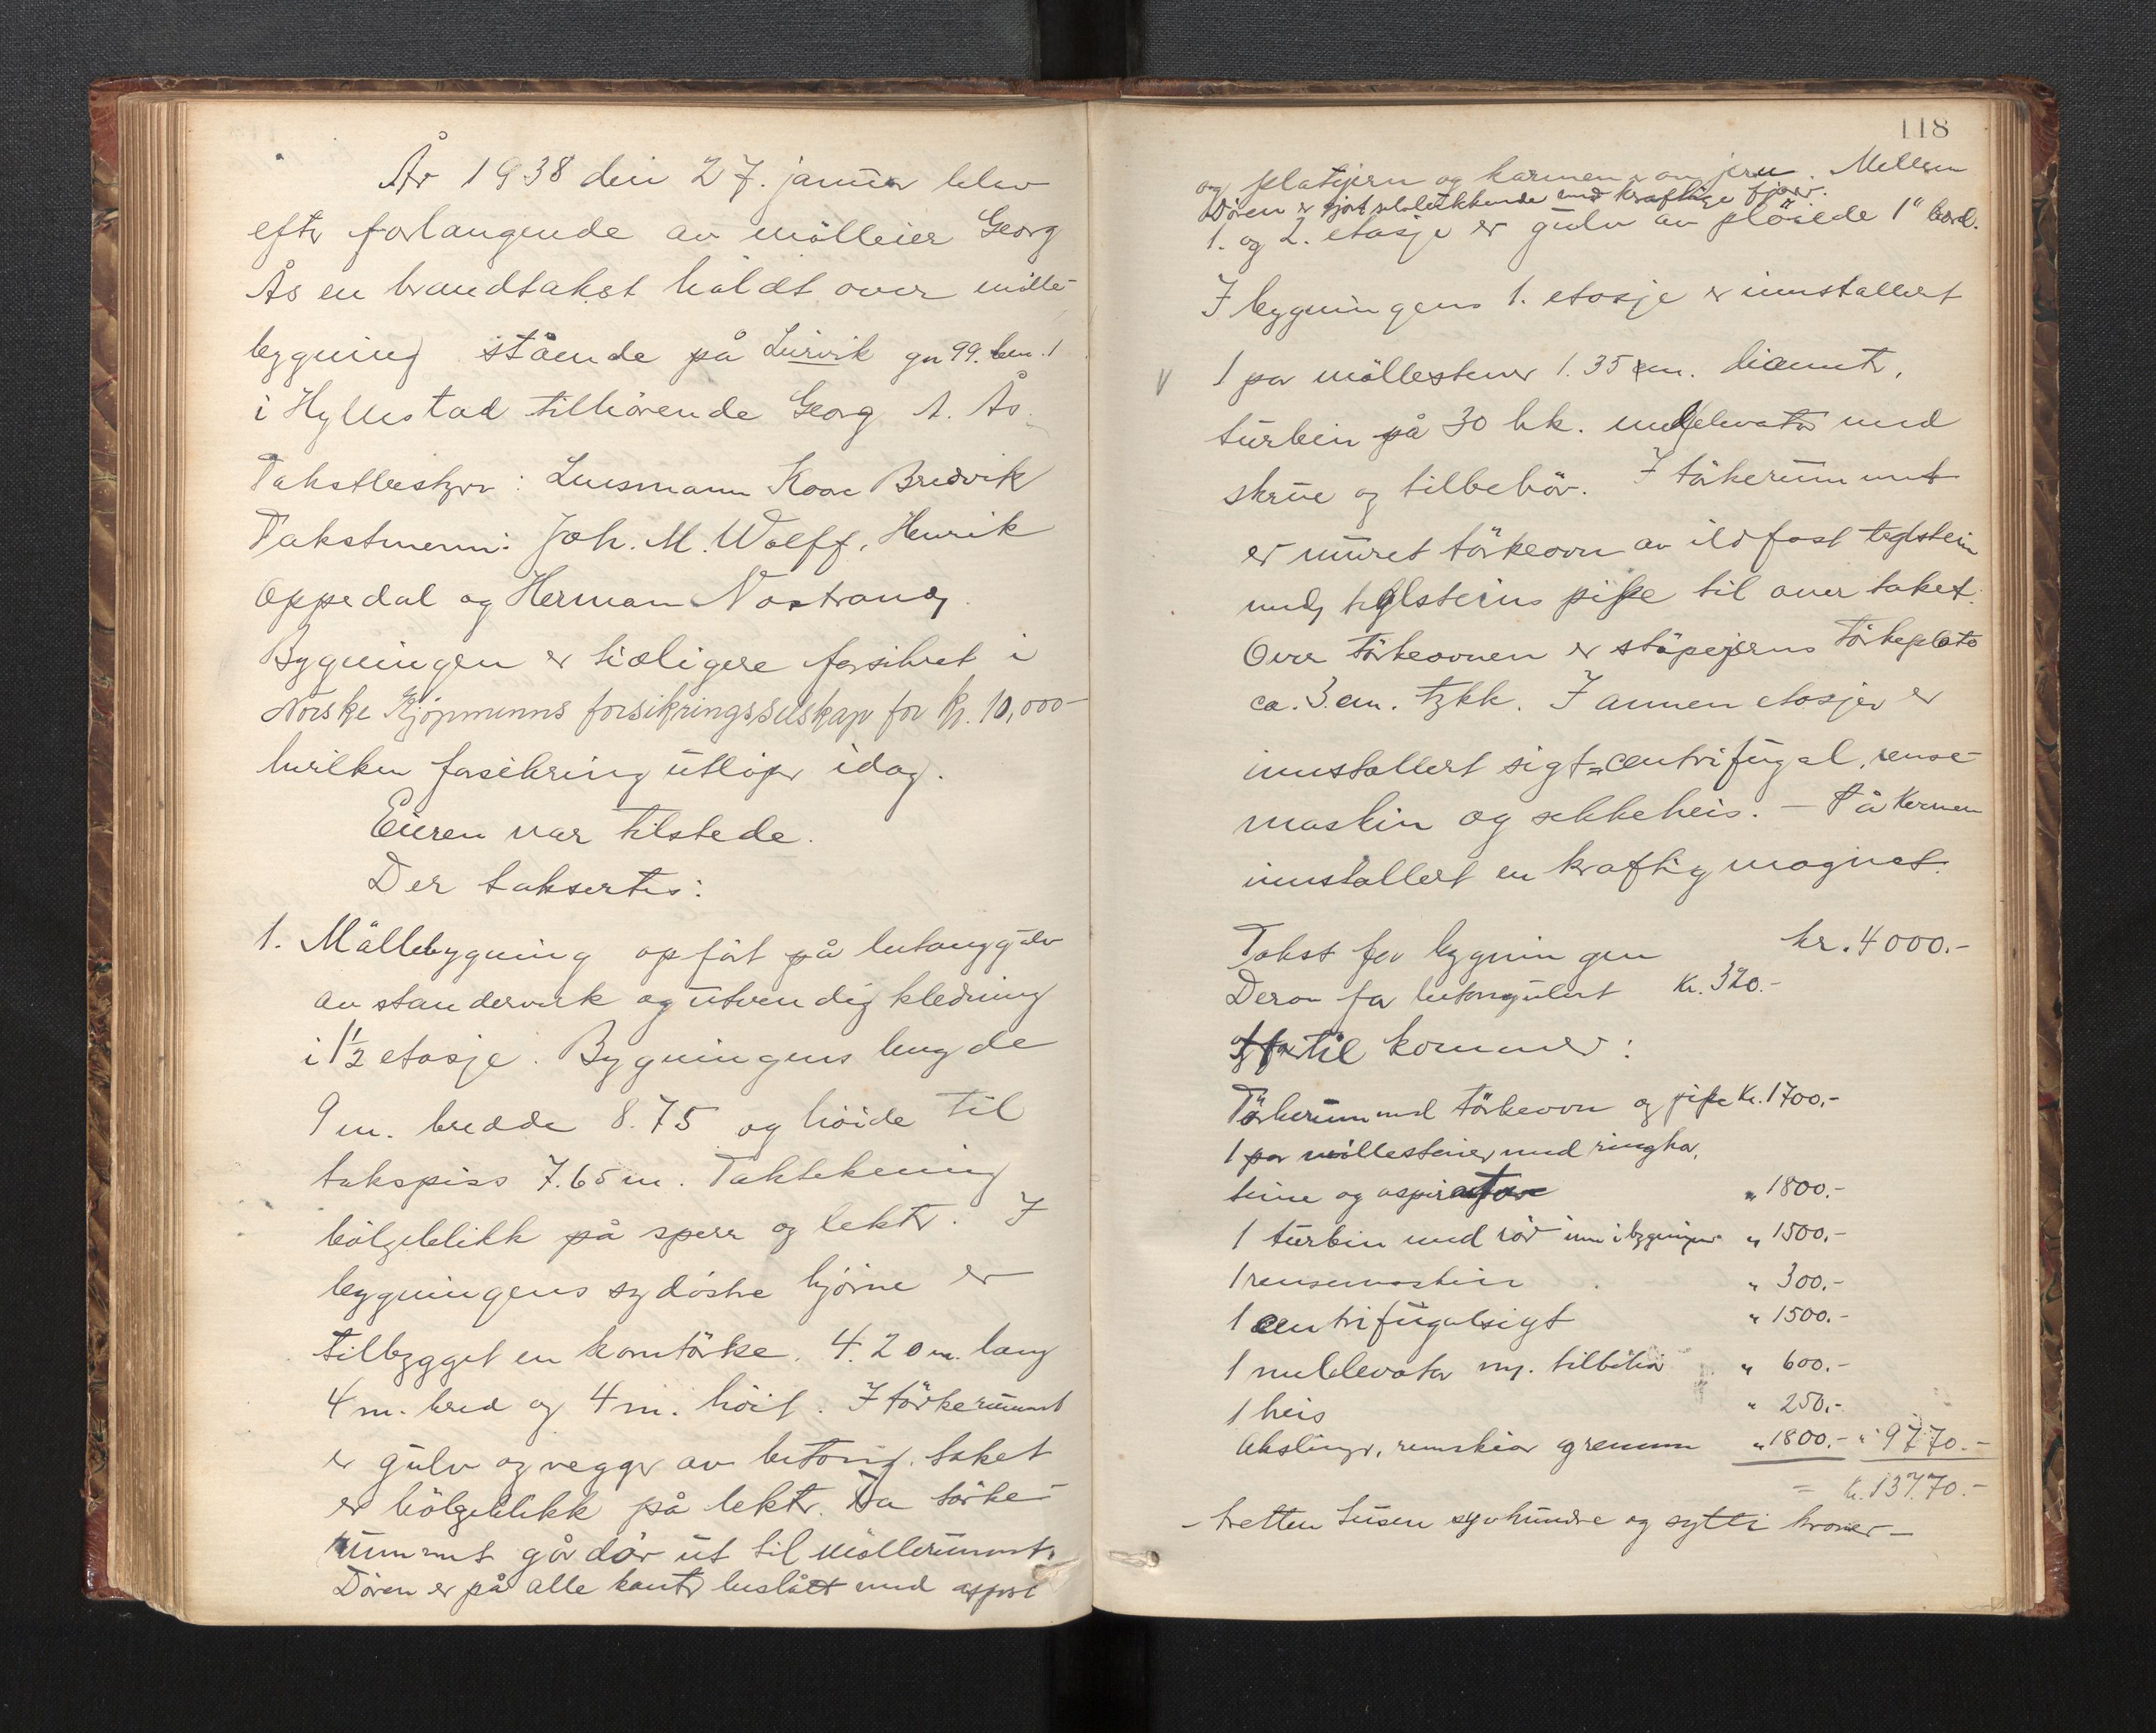 År 1938 den 27. januar blev
efter forlangende av mölleier Georg
Ås en brandtakst holdt over mölle-
bygning stående på Leirvik gn 99. bn. 1
i Hyllestad tilhörende Georg A. Ås.
Takstbestyrer: Lensmann Kåre Bredvik
Takstmenn: Joh. M. Wolff, Henrik
Oppedal og Herman Nostrand.
Bygningen er tidligere forsikret i
Norske Kjöpmenns forsikringsselskap for kr. 10,000-
hvilken forsikring utlöper idag.
Eieren var tilstede.
Der taksertes:
1. Möllebygning opfört på betonggulv
av standerverk og utvendig kledning
i 1 1/2 etasje. Bygningens lengde
9 m. bredde 8.75 og höide til
takspiss 7.65 m. Taktekning
bölgeblikk på sperr og lekter. I
bygningens sydöstre hjörne er
tilbygget en korntörke. 4.20 m. lang
4 m. bred og 4 m. höit. I törkerummet
er gulv og vegger av betong. taket
er bölgeblikk på lekter. Fra törke-
rummet går dör ut til möllerummet.
Dören er på alle kanter beslått med
118
og platejern og karmen er av jern. Mellem
Dören er gjort selvlukkende med kraftige fjær.
1. og 2. etasje er gulv av plöiede 1" bord.
I bygningens 1. etasje er innstallert
1 par möllestener 1.35 m. diamter,
turbin på 30 hk. melelevator med
skrue og tilbehör. I törkerummet
er muret törkeovn av ildfast teglstein
med teglsteins pipe til over taket.
Over törkeovnen er stöpejerns törkeplate
ca. 3 cm. tykk. I annen etasje er
innstallert sigt=centrifugal, rense-
maskin og sekkeheis. - På kvernen
innstallert en kraftig magnet.
Takst for bygningen kr. 4000.-
Derav for betongulvet kr. 320.-
til kommer:
Törkerum med törkeovn og pipe kr. 1700,-
1 par möllesteiner med ringkar,
teine og aspiratör " 1800.-
1 turbin med rör inn i bygningen " 1500,-
1 rensemaskin " 300.-
1 centrifugalsigt " 1500.-
1 melelevator m. tilbehör " 600.-
1 heis " 250.-
Akslinger, remskiver og remmer " 1800.- " 9770.-
= kr. 13770.-
- tretten tusen syvhundre og sytti kroner -